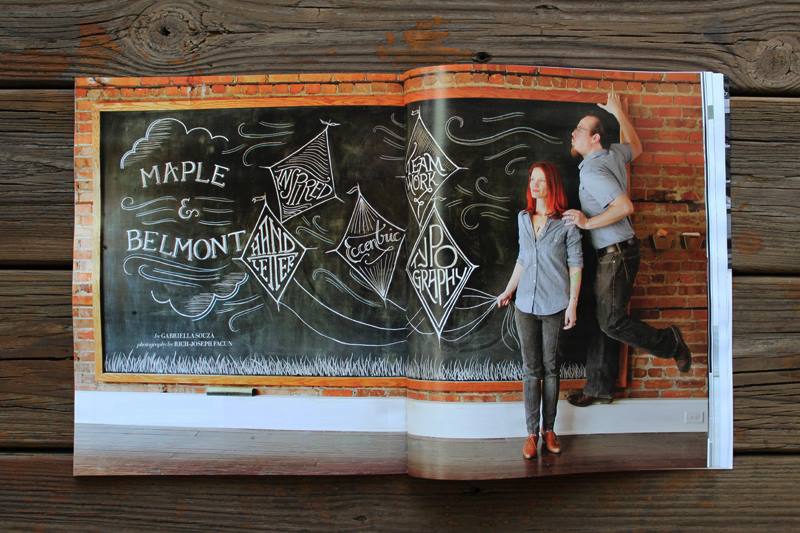 MAPLE
&
BELMONT
INSPIRED
HAND
LETTER
Eccentric
TEAM
WORK
TYPO
GRAPHY
by GABRIELLA SOUZA
photographs by RICH-JOSEPH FACUN